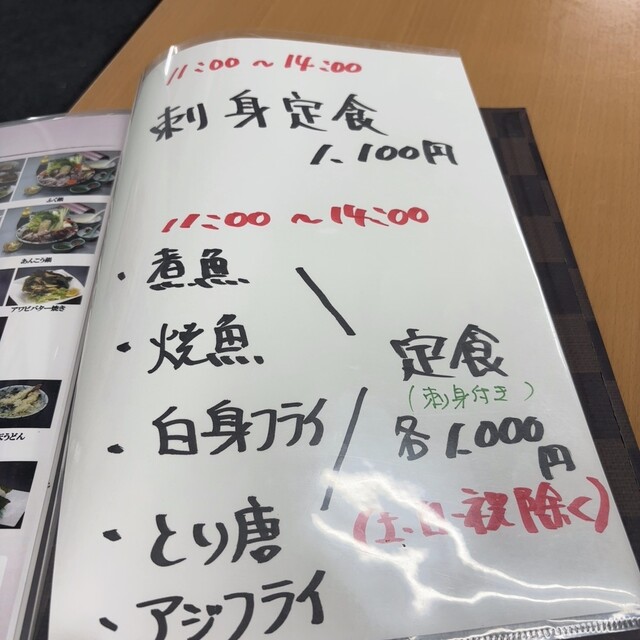 11:00～14:00
刺身定食
1,100円
11:00～14:00
・煮魚
・焼魚
・白身フライ
・とり唐
・アジフライ
定食
(刺身付き)
各1,000円
(土・日・祝除く)
ふく鍋
あんこう鍋
アワビバター焼き